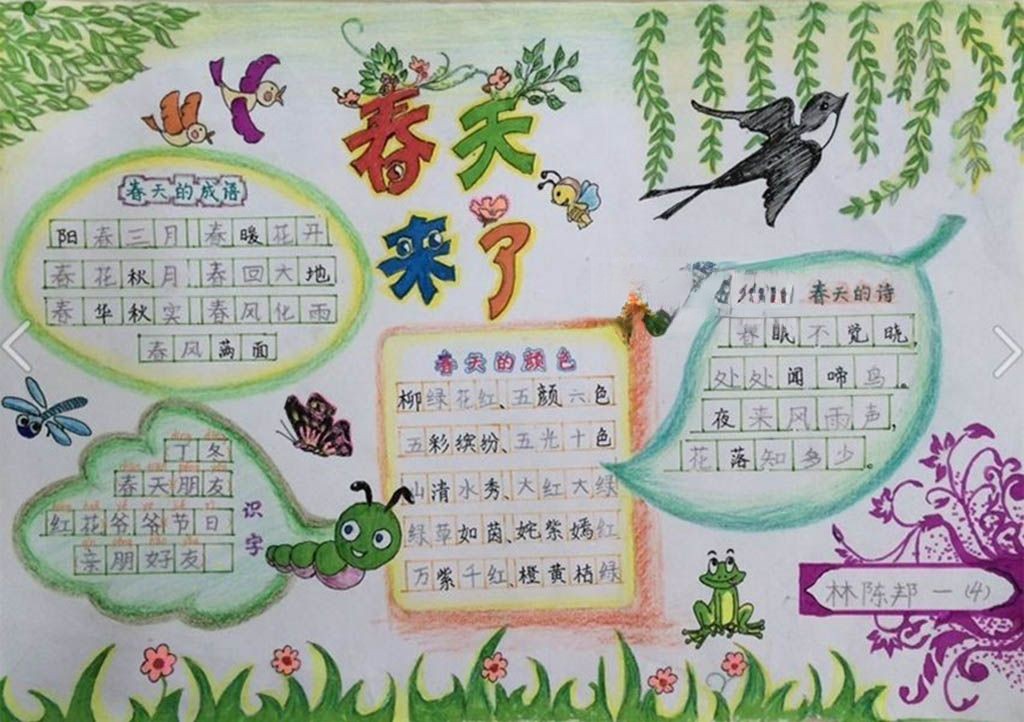 春天
来了
春天的成语
阳春三月 春暖花开
春花秋月 春回大地
春华秋实 春风化雨
春风满面
春天的颜色
柳绿花红、五颜六色
五彩缤纷、五光十色
山清水秀、大红大绿
绿草如茵、姹紫嫣红
万紫千红、橙黄枯绿
春天的诗
春眠不觉晓,
处处闻啼鸟。
夜来风雨声,
花落知多少。
识字
丁冬
春天朋友
红花爷爷节日
亲朋好友
林陈邦 一(4)